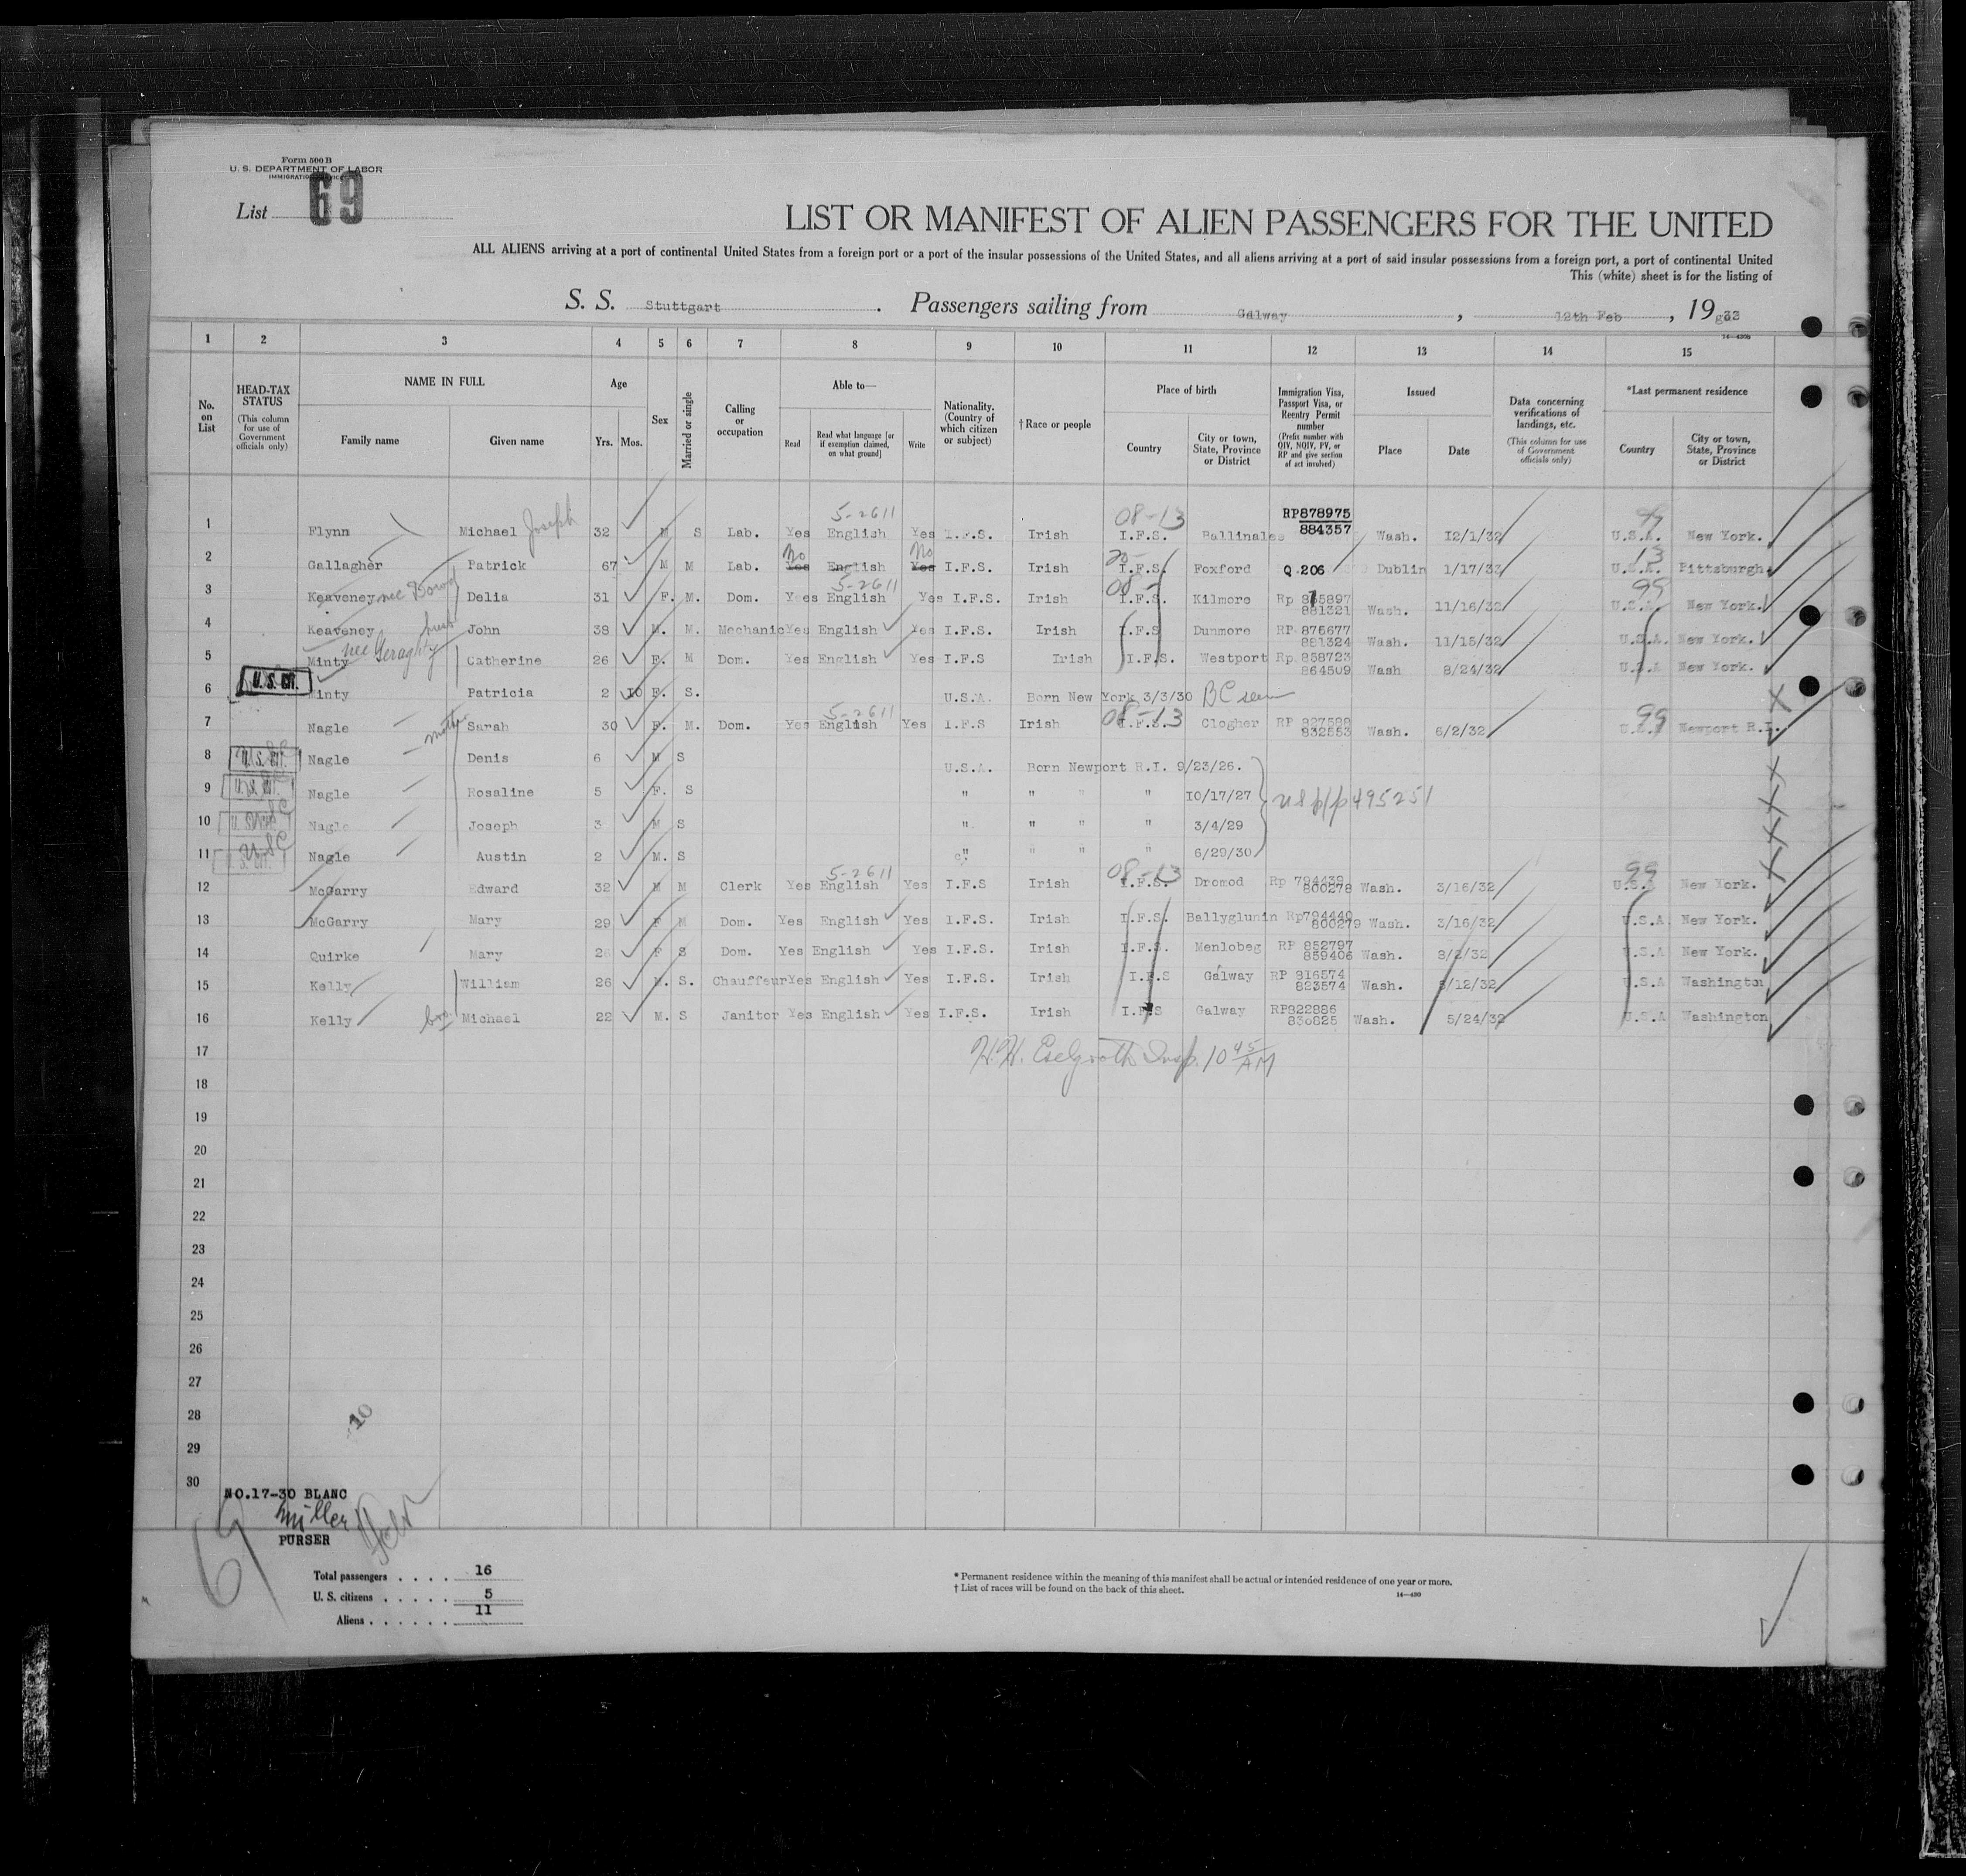 Form 500 B
U. S. DEPARTMENT OF LABOR
List 69
LIST OR MANIFEST OF ALIEN PASSENGERS FOR THE UNITED
ALL ALIENS arriving at a port of continental United States from a foreign port or a port of the insular possessions of the United States, and all aliens arriving at a port of said insular possessions from a foreign port, a port of continental United
This (white) sheet is for the listing of
S. S. Stuttgart. Passengers sailing from Galway, 12th Feb, 1933
14—430B
1 2 3 4 5 6 7 8 9 10 11 12 13 14 15
No. on List
HEAD-TAX STATUS (This column for use of Government officials only)
NAME IN FULL
Family name
Given name
Age
Yrs. Mos.
Sex
Married or single
Calling or occupation
Able to—
Read
Read what language [or if exemption claimed, on what ground]
Write
Nationality. (Country of which citizen or subject)
†Race or people
Place of birth
Country
City or town, State, Province or District
Immigration Visa, Passport Visa, or Reentry Permit number (Prefix number with QIV, NQIV, PV, or RP and give section of act involved)
Issued
Place
Date
Data concerning verifications of landings, etc. (This column for use of Government officials only)
*Last permanent residence
Country
City or town, State, Province or District
5-2611 08-13 99
1 Flynn Michael Joseph 32 M S Lab. Yes English Yes I.F.S. Irish I.F.S. Ballinalee RP878975 884357 Wash. 12/1/32 U.S.A. New York.
No No
2 Gallagher Patrick 67 M M Lab. Yes English Yes I.F.S. Irish I.F.S. Foxford Q 206 Dublin 1/17/33 U.S.A. Pittsburgh
5-2611 08- 99
3 Keaveney nee Delia 31 F. M. Dom. Yes English Yes I.F.S. Irish I.F.S. Kilmore Rp 875897 881321 Wash. 11/16/32 U.S.A. New York.
4 Keaveney husb John 38 M. M. Mechanic Yes English Yes I.F.S. Irish I.F.S Dunmore RP 875677 881324 Wash. 11/15/32 U.S.A. New York.
5 Minty nee Geraghty Catherine 26 F. M Dom. Yes English Yes I.F.S Irish I.F.S. Westport Rp 858723 864509 Wash 8/24/32 U.S.A New York.
6 U.S. CIT. Minty Patricia 2 10 F. S. U.S.A. Born New York 3/3/30 BC seen
5-2611 08-13 99
7 Nagle Sarah 30 F. M. Dom. Yes English Yes I.F.S Irish I.F.S. Clogher RP 827588 832553 Wash. 6/2/32 U.S.A. Newport R.I.
moth
8 U.S. CIT. Nagle Denis 6 M S U.S.A. Born Newport R.I. 9/23/26.
9 U.S. CIT. Nagle Rosaline 5 F. S " " " " 10/17/27 US p/p 495251
10 U.S. CIT. Nagle Joseph 3 M S " " " " 3/4/29
11 U.S. CIT. Nagle Austin 2 M. S " " " " 6/29/30
5-2611 08-13 99
12 McGarry Edward 32 M M Clerk Yes English Yes I.F.S Irish I.F.S. Dromod Rp 794439 800278 Wash. 3/16/32 U.S.A New York.
13 McGarry Mary 29 F M Dom. Yes English Yes I.F.S. Irish I.F.S. Ballyglunin Rp794440 800279 Wash. 3/16/32 U.S.A New York.
14 Quirke Mary 26 F S Dom. Yes English Yes I.F.S. Irish I.F.S. Menlobeg RP 852797 859406 Wash. 8/2/32 U.S.A New York.
15 Kelly William 26 M. S. Chauffeur Yes English Yes I.F.S. Irish I.F.S Galway RP 816574 823574 Wash. 5/12/32 U.S.A Washington
16 Kelly bro Michael 22 M. S Janitor Yes English Yes I.F.S. Irish I.F.S Galway RP822886 830825 Wash. 5/24/32 U.S.A Washington
17
Insp. 10 45 AM
18
19
20
21
22
23
24
25
26
27
28
29
30
10
NO.17-30 BLANC
Müller
PURSER
69
Total passengers 16
U. S. citizens 5
Aliens 11
* Permanent residence within the meaning of this manifest shall be actual or intended residence of one year or more.
† List of races will be found on the back of this sheet.
14—430